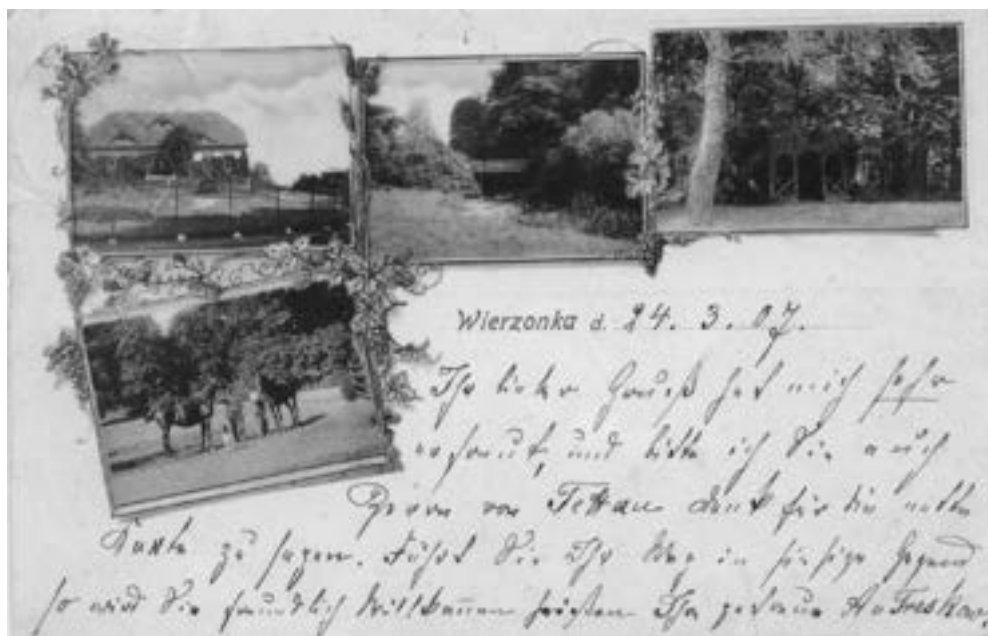 Wierzonka d. 24. 3. 07.
Ihr lieber Gruß hat mich sehr
erfreut, und bitte ich Sie auch
Herrn von Tettau Dank für die nette
Karte zu sagen. Führt Sie Ihr Weg in hiesige Gegend
so wird Sie freundlich Willkommen heißen Ihr getreuer A v Treskow.